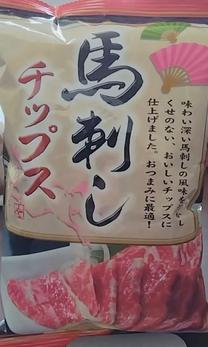 馬刺し
チップス
味わい深い馬刺しの風味を
くせのない、おいしいチップスに
仕上げました。おつまみに最適！